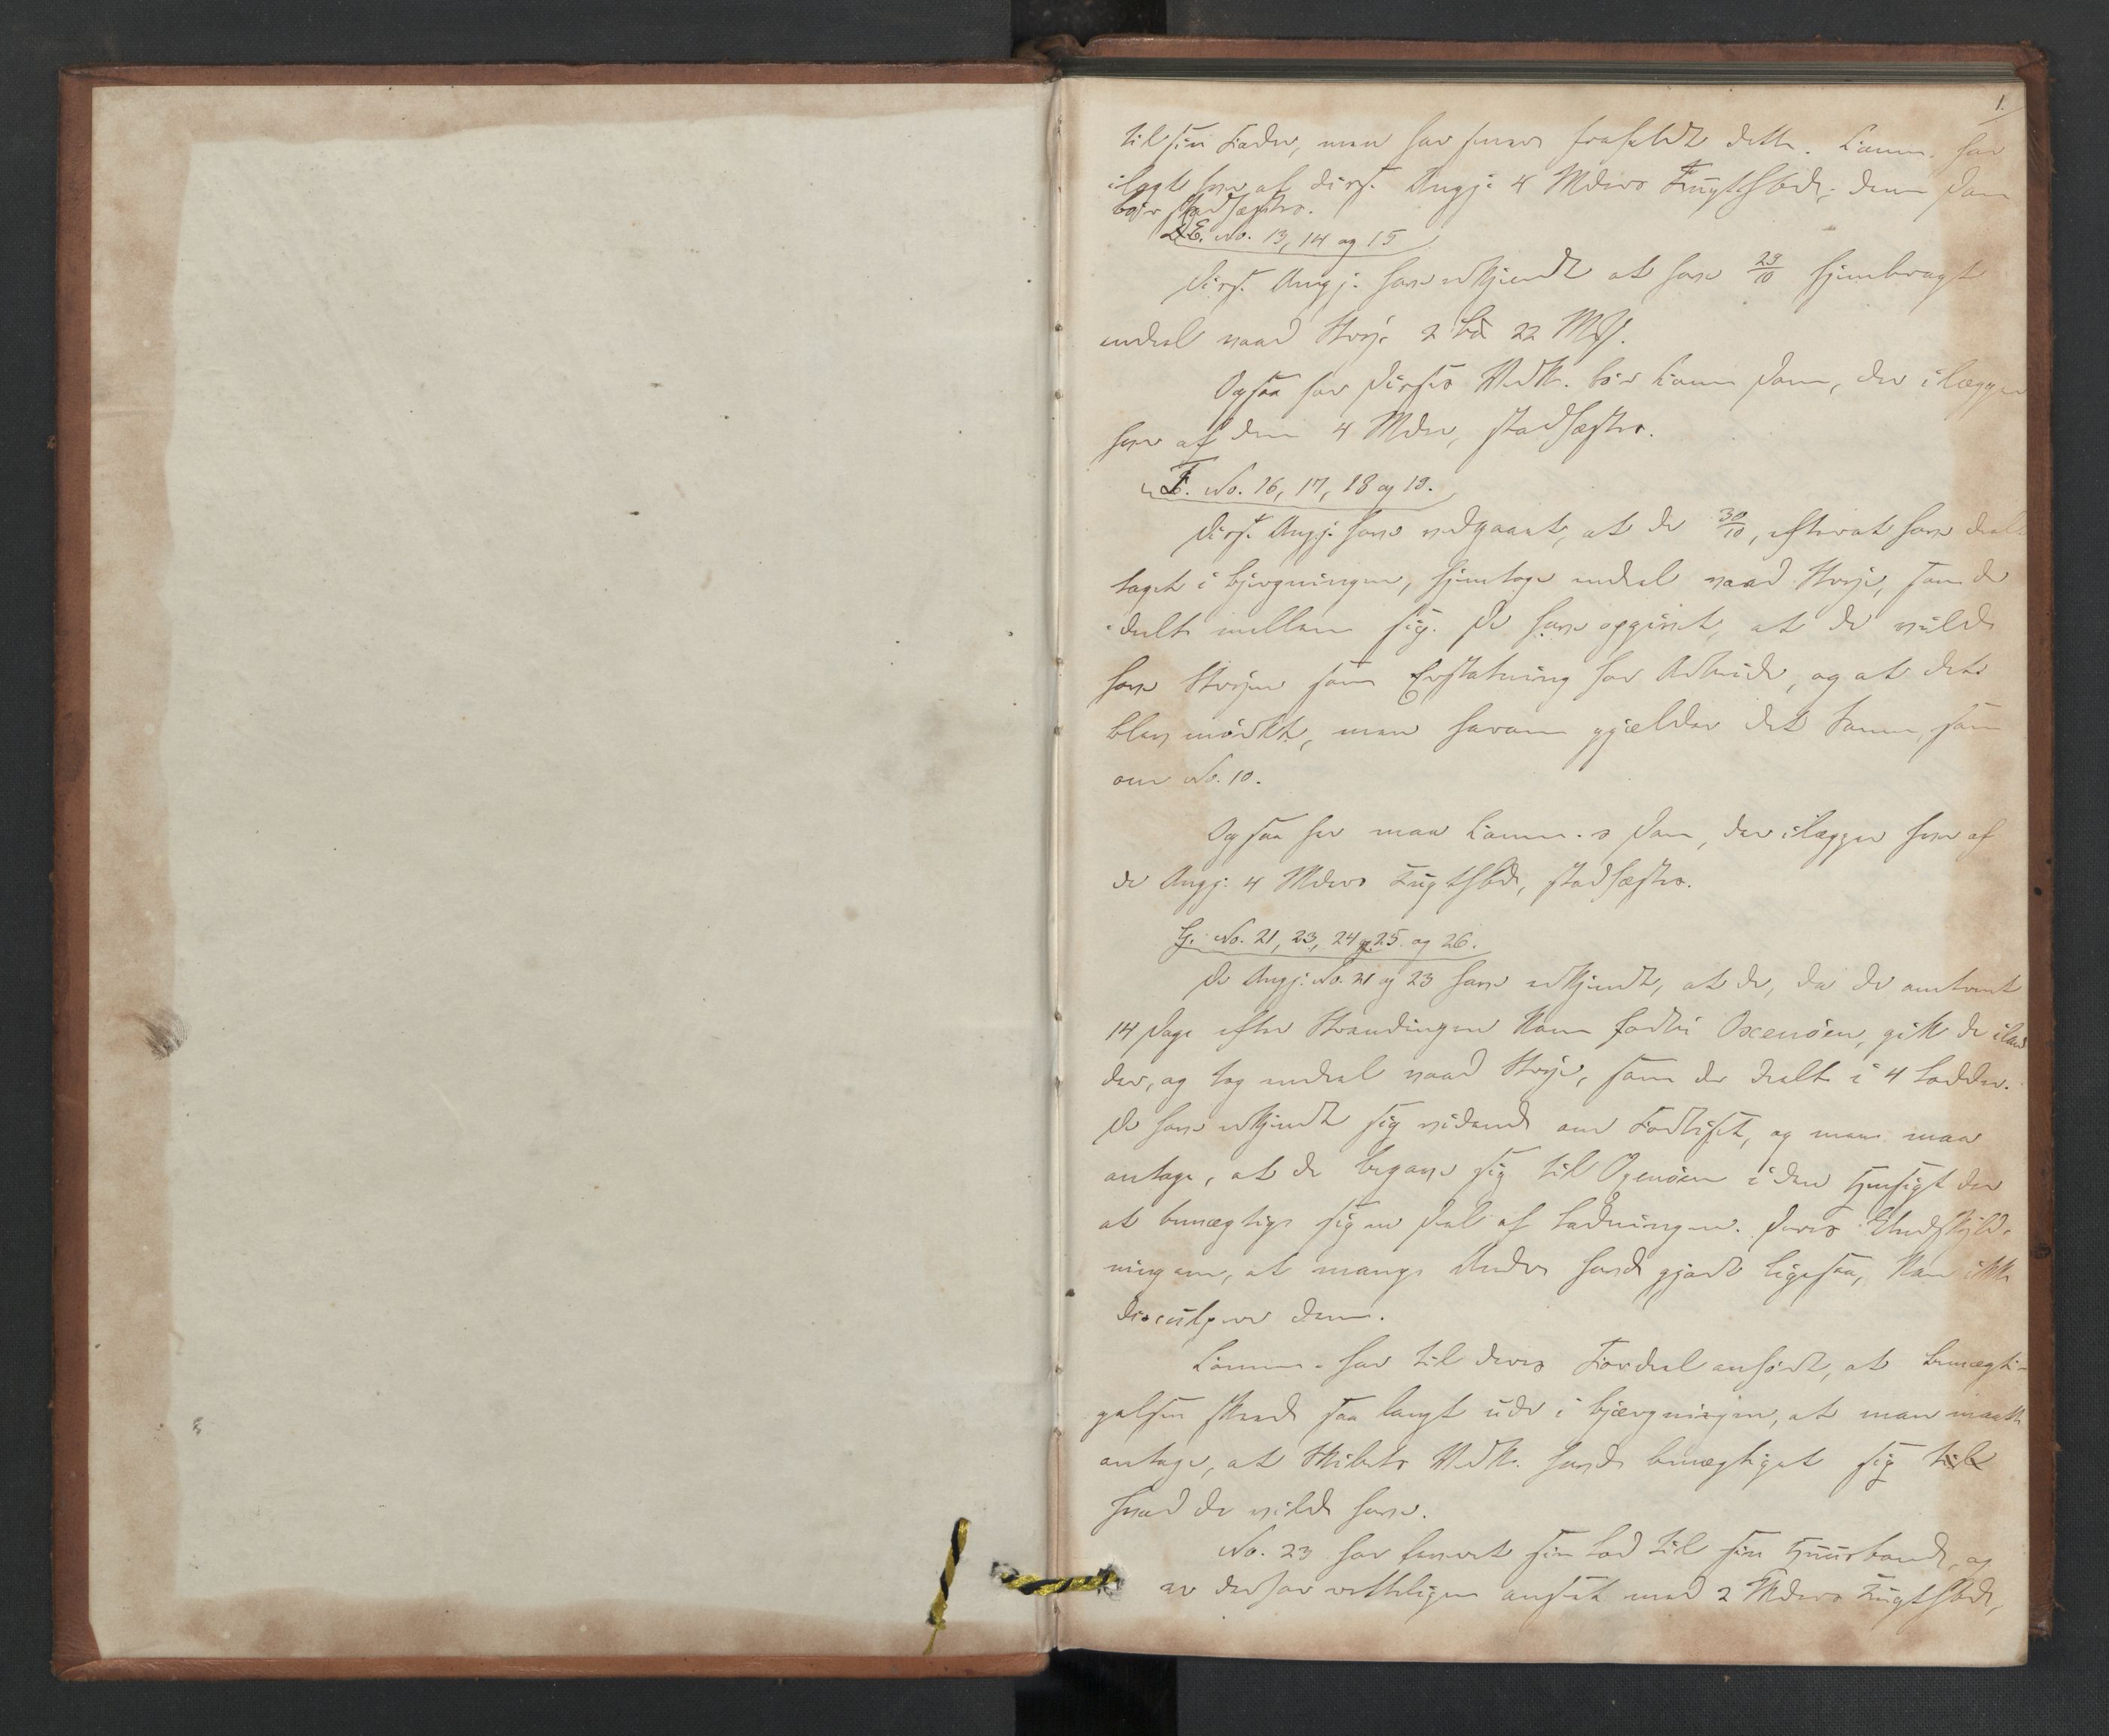 1.
til sin Fader, men har senere frafaldt dette. Comm. har
ilagt hver af disse Angj: 4 Mdrs Tugthsbde; denne Dom
bør stadfæstes.
E. No. 13, 14 og 15
Disse Angj: have erkjendt at have 29/10 hjembragt
endeel vaad Strie 2 22
Ogsaa for disses Vedk. bør Comm Dom, der ilægger
hver af dem 4 Mdr, stadfæstes.
F. No. 16, 17, 18 og 19.
Disse Angj: have vedgaaet, at de 30/10, efterat have deel
taget i bjergningen, hjemtoge endeel vaad Strie, som de
deelte mellem sig. De have opgivet, at de vilde
have Strien som Erstatning for Arbeide, og at det
blev mørkt, men herom gjælder det samme, som
om No. 10.
Ogsaa her maa Comm.s Dom, der ilægger hver af
de Angj: 4 Mdrs Tugthsbde, stadfæstes.
G. No. 21, 23, 24, 25 og 26.
De Angj: No. 21 og 23 have erkjendt, at de, da de omtrent
14 Dage efter Strandingen kom forbi Oxenöen, gik de iland
der, og tog endeel vaad Strie, som de deelte i 4 Lodder.
De have erkjendt sig vidende om Forliset, og man maa
antage, at de begave sig til Oxenöen i den Hensigt der
at bemægtige sig en Deel af Ladningen. Deres Undskyld-
ning om, at mange Andre havde gjort ligesaa, kan ikke
disculpere dem.
Comm. har til deres Fordeel anført, at bemægti-
gelsen skeede saa langt ude i bjærgningen, at man maatte
antage, at Skibets Vedk. havde bemægtiget sig
hvad de vilde have.
No. 23 har leveret sin Lod til sin Huusbonde, og
er derfor retteligen anseet med 2 Mdrs Tugthsbde,